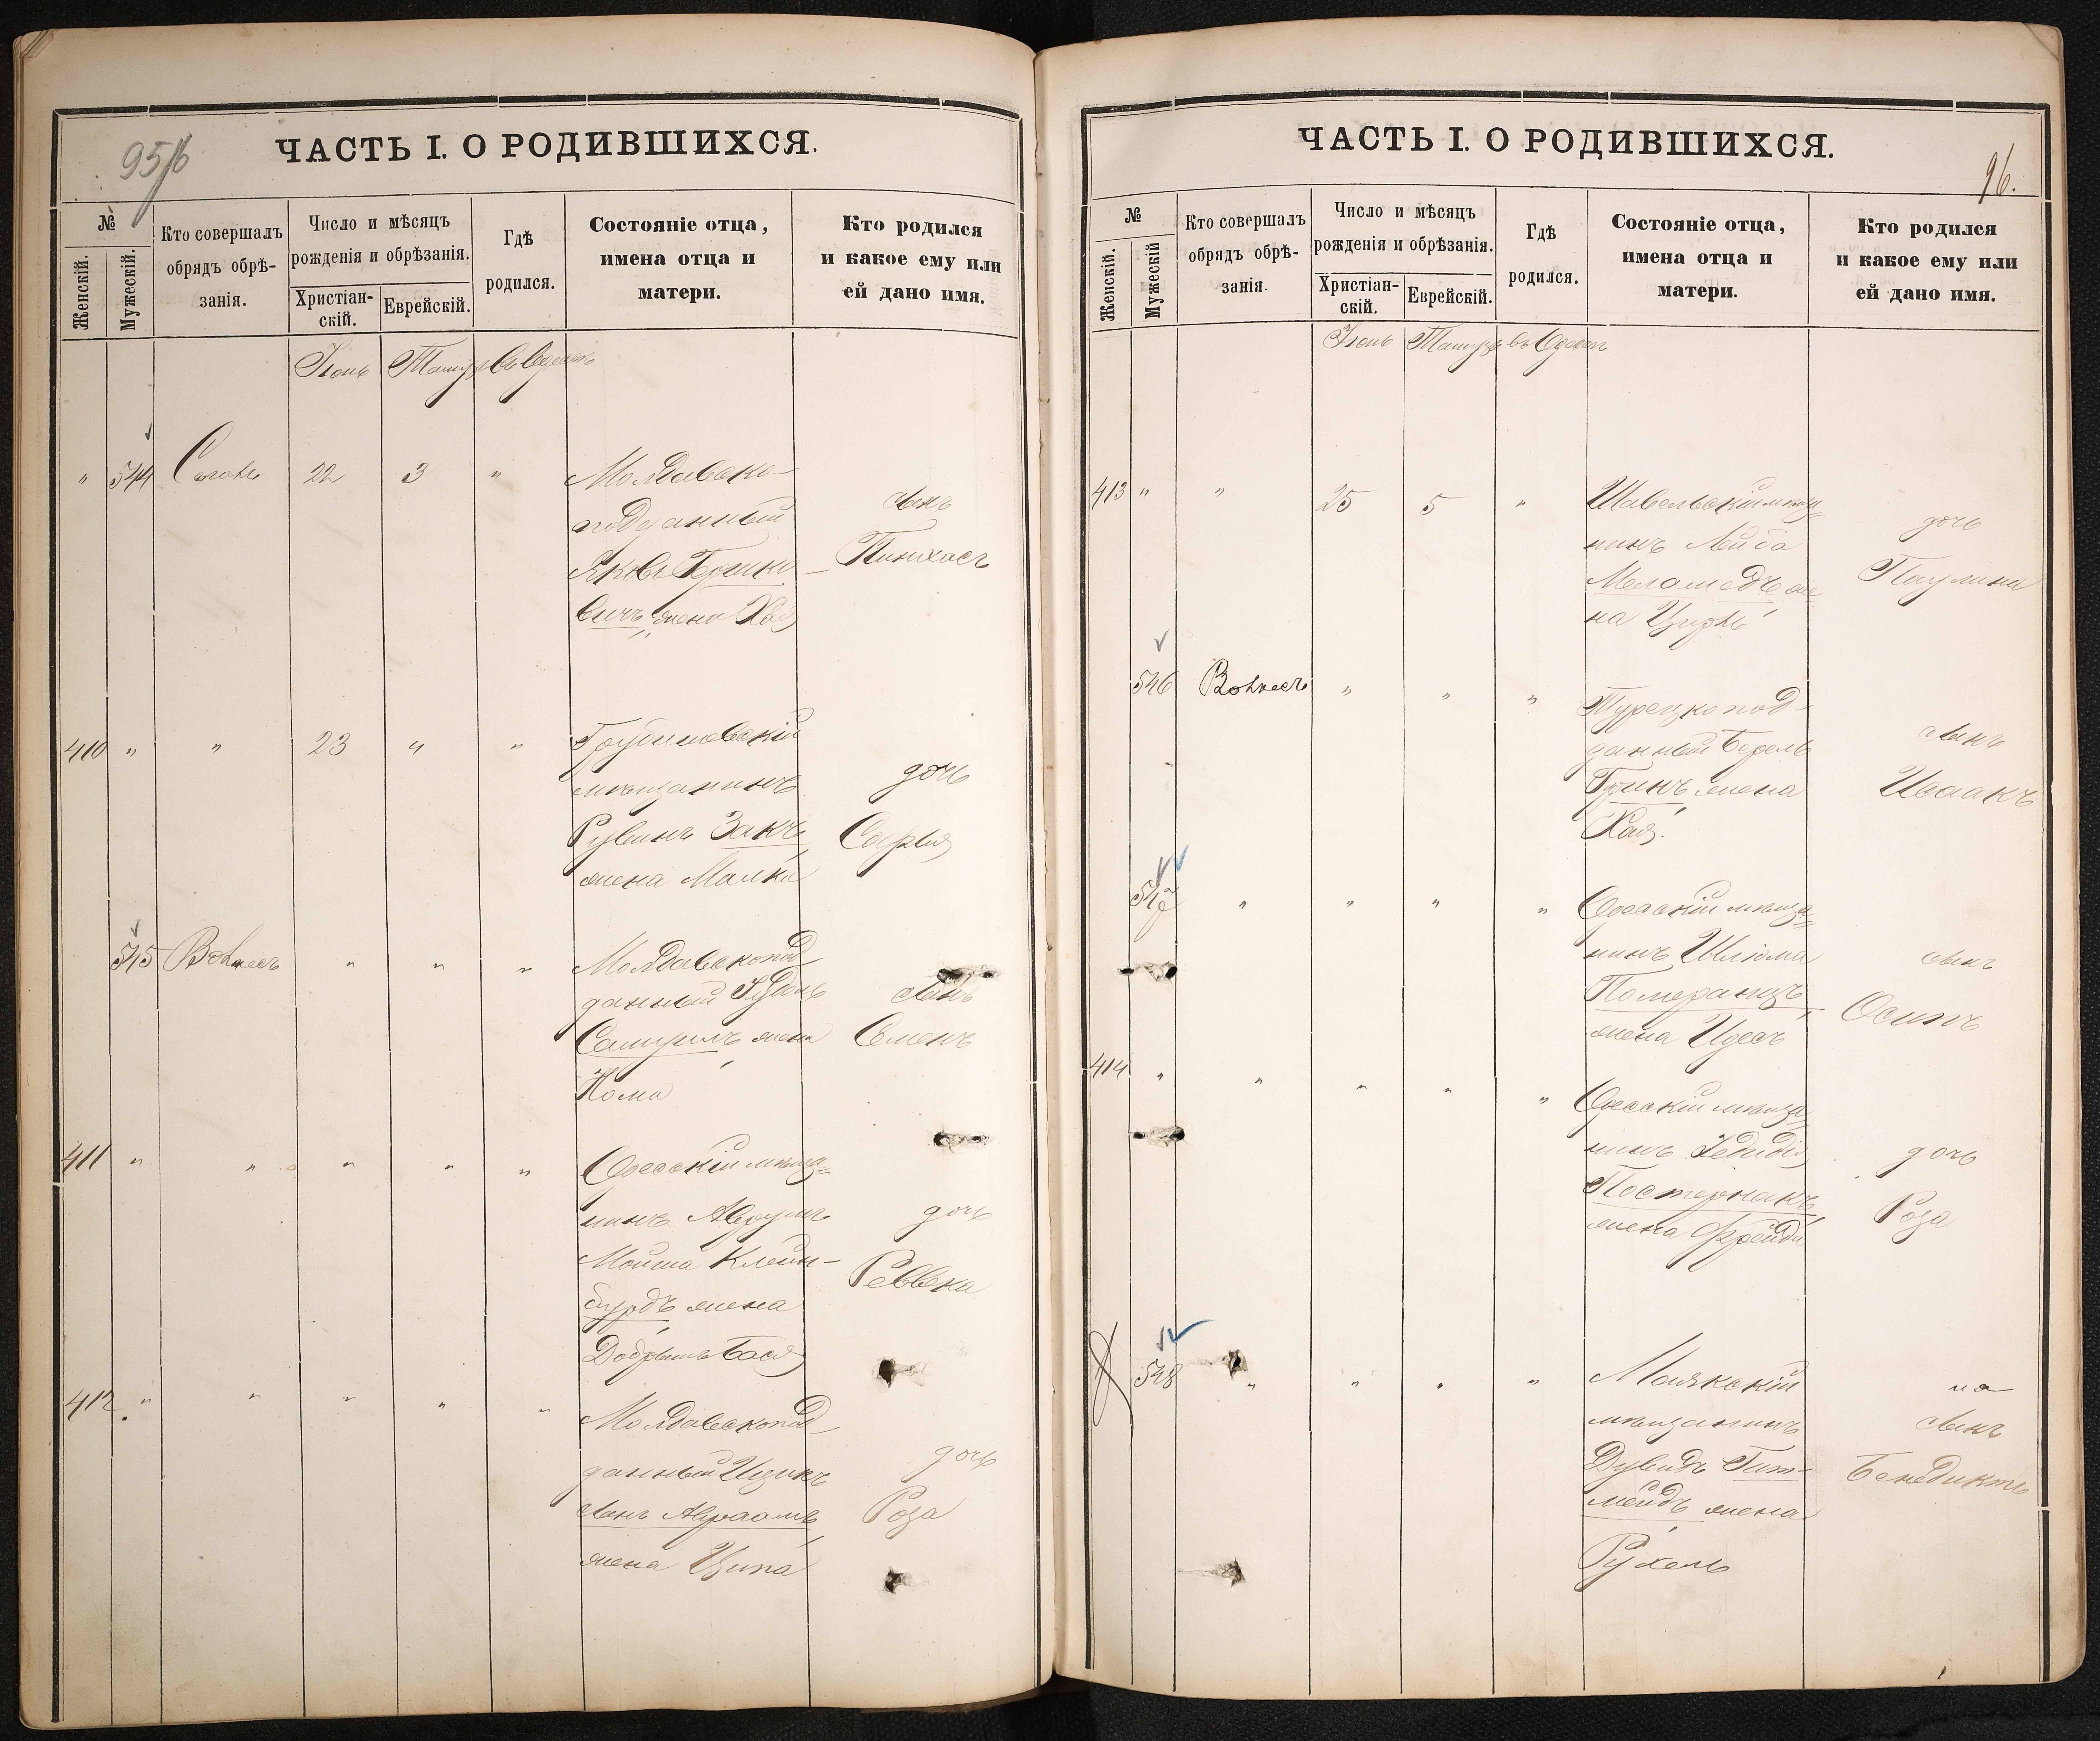 95
ЧАСТЬ I. О РОДИВШИХСЯ.
№
Женскій.
Мужескій.
Кто совершалъ
обрядъ обрѣ-
занія.
Число и мѣсяцъ
рожденія и обрѣзанія.
Христіан-
скій.
Еврейскій.
Гдѣ
родился.
Состояніе отца,
имена отца и
матери.
Кто родился
и какое ему или
ей дано имя.
Іюнь Тамузъ въ Одессѣ
" 544 22 3 "
Молдавско-
подданный
Яковъ Гершко-
вичъ, жена Хая
сынъ
Пинхасъ
410 " " 23 4 "
Грубешовскій
мѣщанинъ
Рувинъ Закъ,
жена Малка
дочь
Софья
545 " " "
Молдавскопод
данный
жена
сынъ
Семенъ
411 " " " " "
Одесскій мѣща=
нинъ Аврумъ
Мойша Клейн-
бурдъ, жена
Добрышъ Бася
дочь
Реввека
412. " " " " "
Молдавскопод
данный Ицикъ
сынъ Авраамъ,
жена Ципа
дочь
Роза
96.
ЧАСТЬ I. О РОДИВШИХСЯ.
№
Женскій.
Мужескій
Кто совершалъ
обрядъ обрѣ-
занія.
Число и мѣсяцъ
рожденія и обрѣзанія.
Христіан-
скій.
Еврейскій.
Гдѣ
родился.
Состояніе отца,
имена отца и
матери.
Кто родился
и какое ему или
ей дано имя.
Іюнь Тамузъ въ Одессѣ
413 " " 25 5 "
Шавельскій мѣща=
нинъ Лейба
Меламедъ, же=
на
дочь
Паулина
546 " " "
Турецкопод-
данный Берель
Гринъ, жена
Хая.
сынъ
Исаакъ
547 " " " "
Одесскій мѣща=
нинъ Шлюма
Померанцъ,
жена Идесъ
сынъ
Осипъ
414 " " " " "
Одесскій мѣща=
нинъ Іедидія
Постернакъ,
жена Фрейда
дочь
Роза
548 " " " "
Маякскій
мѣщанинъ
Дувидъ Гит-
мейдъ, жена
Рухель
сынъ
Бенедиктъ